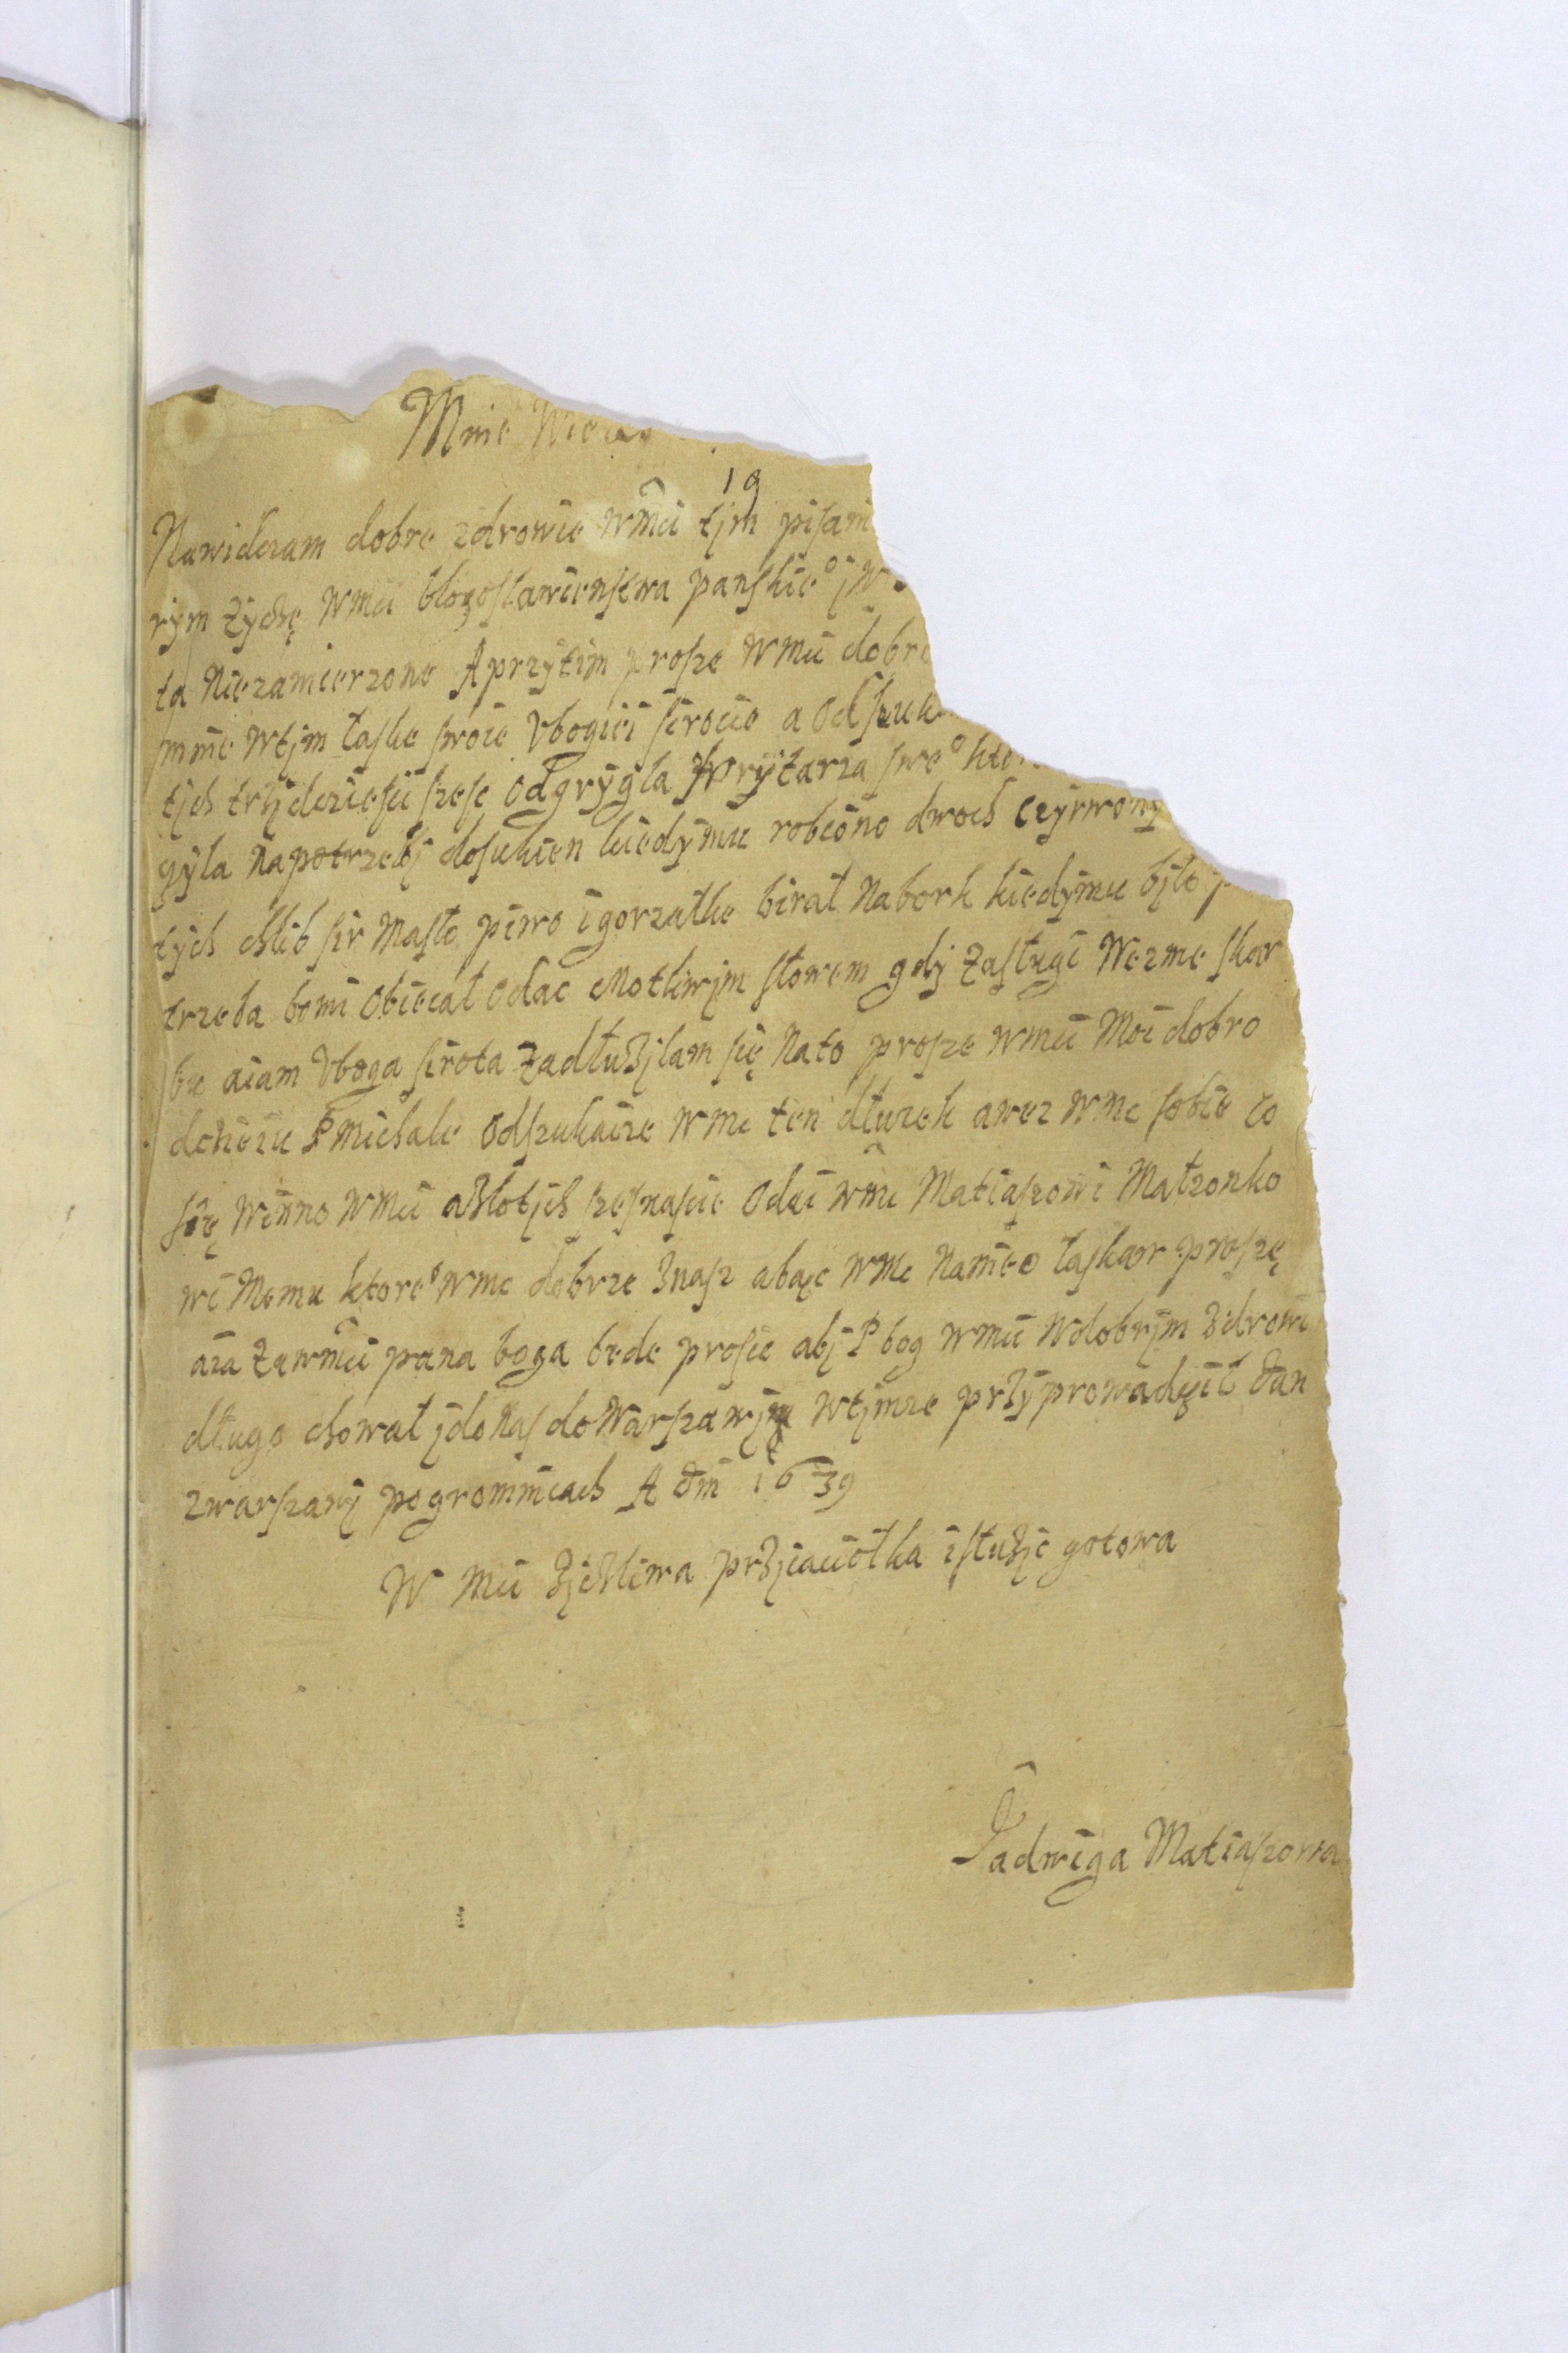 Mnie
19
Nawidzam dobre zdrowie wmci tjm pisani
rym zyczę wmci blogoslawienstwa panskie° j w
ta Niezamierzone A przytim prosze wmci dobro
mnie wtjm laske swoie Vbogiei sirocie a Odszuk
tjch trzjdziesci szesc Od grygla swe° kto
gyla Na potrzebj do sukien kiedymu robiono dwoch czyrwony
tych chlib sir Maslo piwo i gorzalke birał Nabork kiedymu bjlo p
trzeba bo mi Obiecał Odac cnotliwjm słowem gdj zasługi Wezme skar
bu a iam Vboga sirota zadłuzjlam się Nato prosze wmci Moi dobro
dzieiu P michale Odszukaicze wmc ten dłuzek a wez wmc sobie co
się winno wmci a złotjch szesnascie Odai wmc Matiaszowi Małzonko
wi Memu ktore° wmc dobrze znasz abąc wmc Namie łaskaw proszę
a ia za wmci pana boga bede prosic abj P bog wmci w dobrjm zdrowi
długo chowal j do Nas do Warszawj wtjmze przyprowadził dan
z warszawj po gromnicach A dm 1639
W mci zjczliwa przjiaciołka i służjc gotowa
Jadwiga Matiaszowa